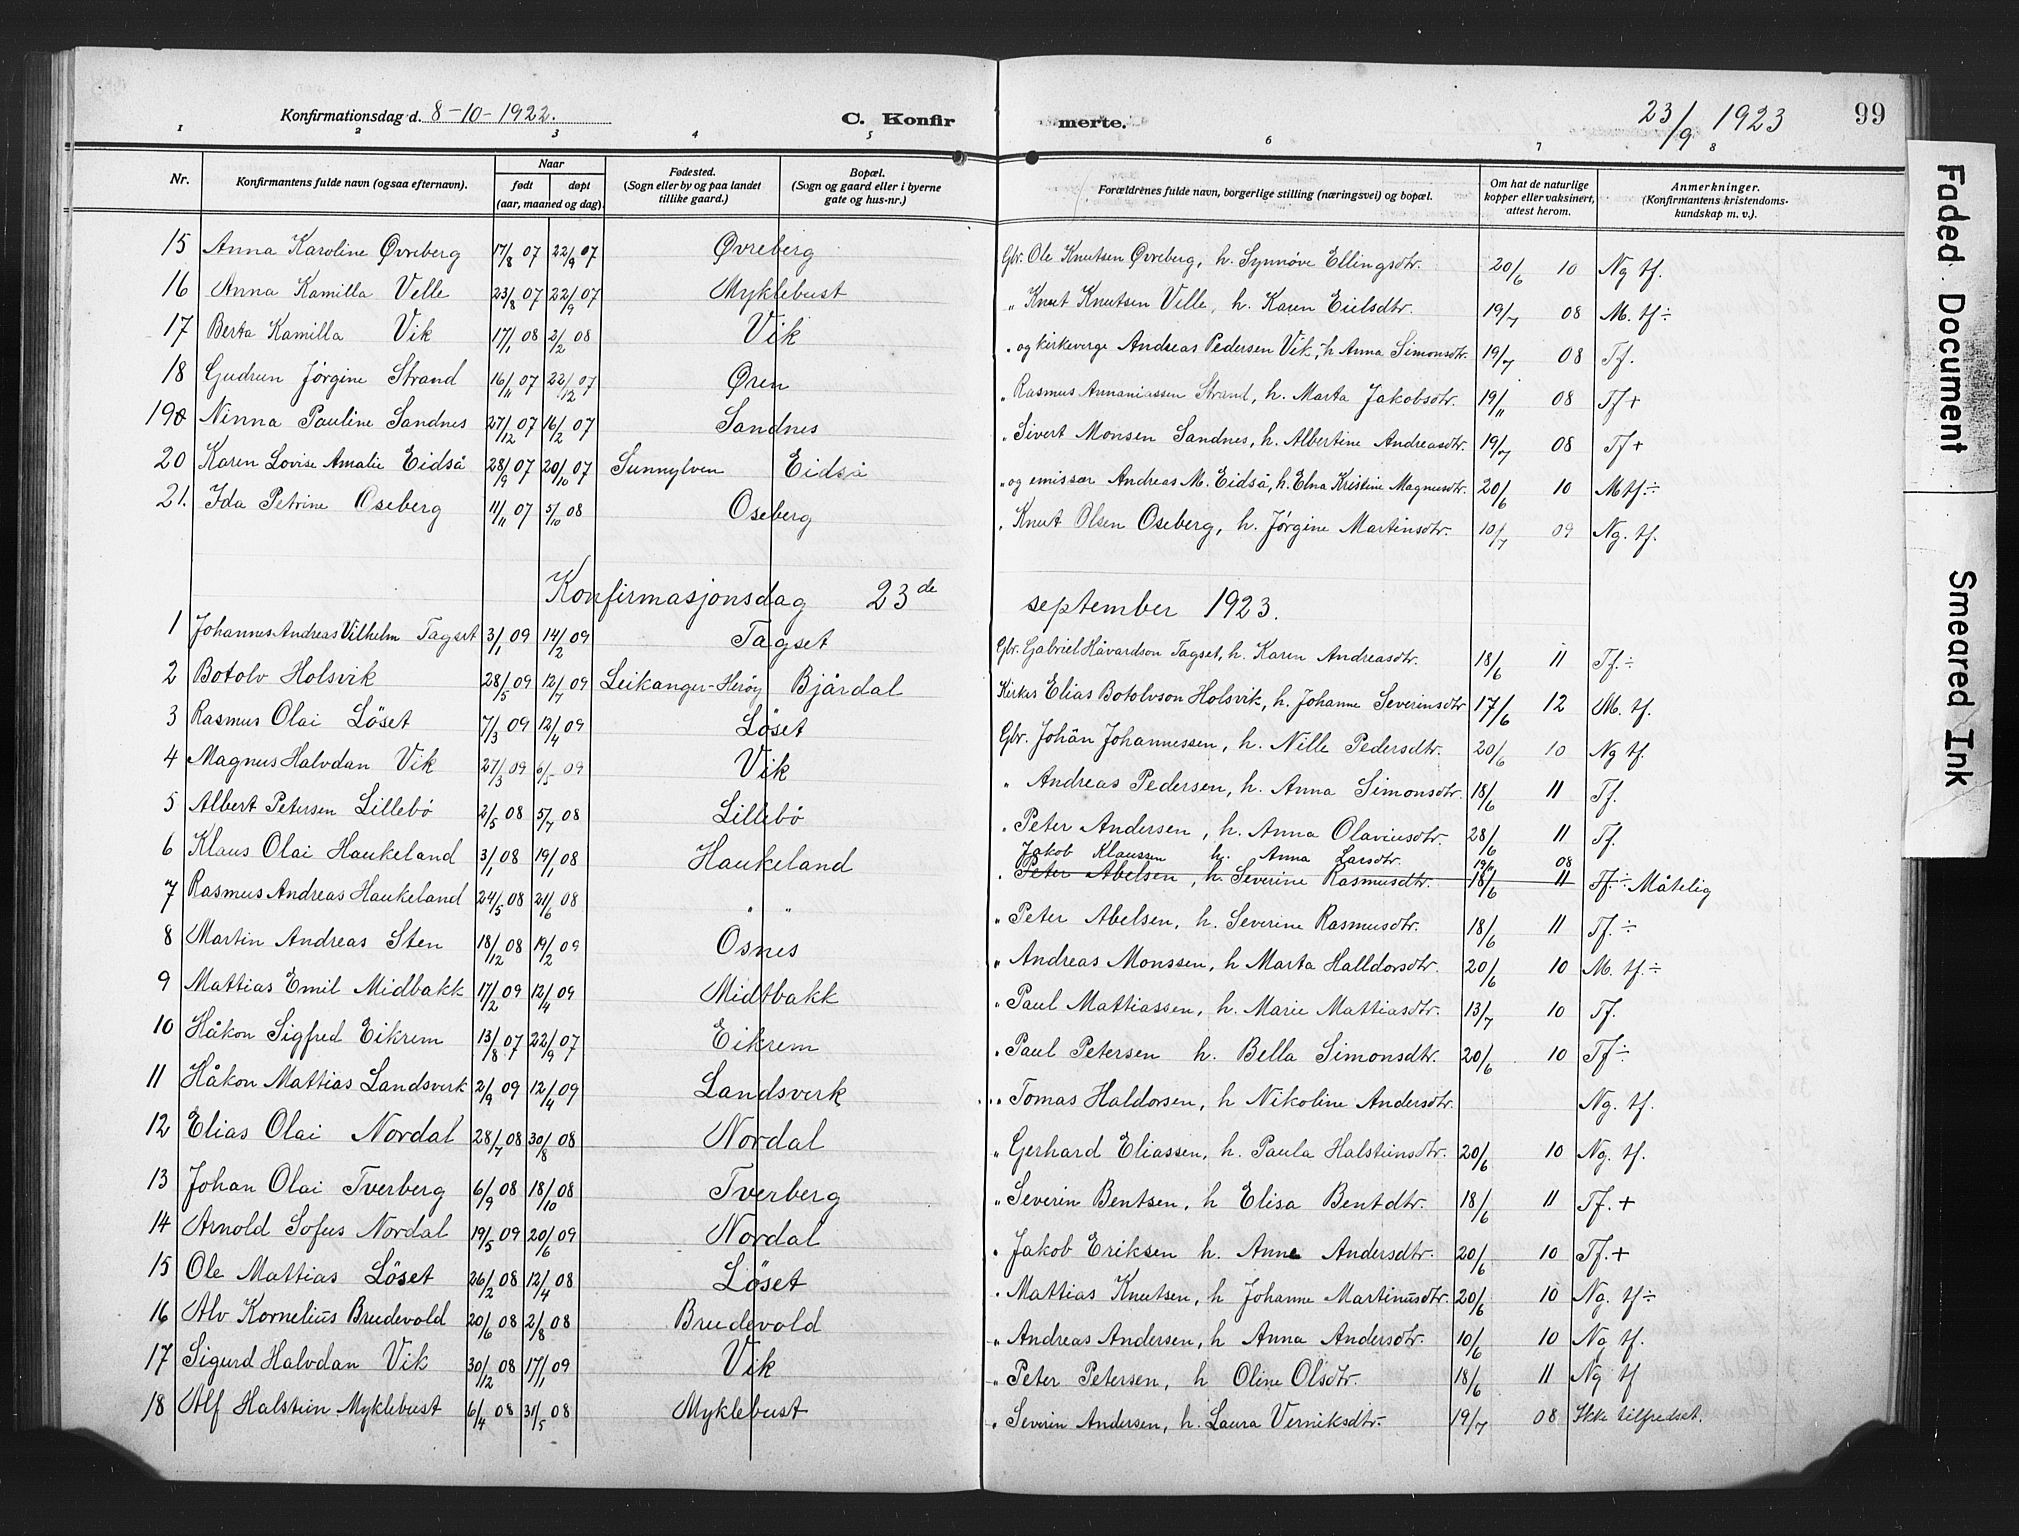 Konfirmationsdag d. 8-10-1922. C. Konfirmerte. 23/9 1923 99
1 2 3 4 5 6 7 8
Nr. Konfirmantens fulde navn (ogsaa efternavn). Naar født døpt (aar, maaned og dag). Fødested. (Sogn eller by og paa landet tillike gaard.) Bopæl. (Sogn og gaard eller i byerne gate og hus-nr.) Forældrenes fulde navn, borgerlige stilling (næringsvei) og bopæl. Om hat de naturlige kopper eller vaksinert, attest herom. Anmerkninger. (Konfirmantens kristendomskundskap m. v.).
15 Anna Karoline Øvreberg 17/8 07 22/9 07 Øvreberg Gbr. Ole Knutsen Øvreberg, h. Synnøve Ellingsdtr. 20/6 10 Ng tf.
16 Anna Kamilla Velle 23/8 07 22/9 07 Myklebust " Knut Knutsen Velle, h. Karen Eilsdtr. 19/7 08 M. tf ÷
17 Berta Kamilla Vik 17/1 08 2/2 08 Vik " og kirkeverge Andreas Pedersen Vik, h Anna Simonsdtr. 19/7 08 Tf.
18 Gudrun Jørgine Strand 16/11 07 22/12 07 Øren " Rasmus Annaniassen Strand, h. Marta Jakobsdtr. 19/11 08 Tf +
19 Ninna Pauline Sandnes 27/12 07 16/2 07 Sandnes " Sivert Monsen Sandnes, h. Albertine Andreasdtr. 19/7 08 Tf +
20 Karen Lovise Amalie Eidså 28/9 07 20/10 07 Sunnylven Eidså " og emissær Andreas M. Eidså, h. Elna Kristine Magnusdtr. 20/6 10 Mtf. ÷
21. Ida Petrine Oseberg 11/11 07 5/10 08 Oseberg " Knut Olsen Oseberg, h. Jørgine Martinsdtr. 10/7 09 Ng. tf.
Konfirmasjonsdag 23de september 1923.
1 Johannes Andreas Vilhelm Tagset 3/1 09 14/2 09 Tagset Gbr. Gabriel Håvardson Tagset, h. Karen Andreasdtr. 18/6 11 Tf. ÷
2 Botolv Holsvik 28/5 09 12/7 09 Leikanger-Herøy Bjårdal Kirkes Elias Botolvson Holsvik, h. Johanne Severinsdtr 17/6 12 M. tf.
3 Rasmus Olai Löset 7/3 09 12/4 09 Löset Gbr. Johan Johannessen, h. Nille Pedersdtr. 20/6 10 Ng tf.
4 Magnus Halvdan Vik 27/3 09 6/5 09 Vik " Andreas Pedersen, h. Anna Simonsdtr. 18/6 11 Tf.
5 Albert Petersen Lillebö 2/5 08 5/7 08 Lillebö " Peter Andersen, h. Anna Olaviusdtr. 28/6 11 Tf.
6 Klaus Olai Haukeland 3/1 08 19/1 08 Haukeland Jakob Klaussen h. Anna Larsdtr. 19/11 08
" Peter Abelsen, h. Severine Rasmusdtr. 18/6 11 Tf. ÷ Måtelig
7 Rasmus Andreas Haukeland 24/5 08 21/6 08 " " " Peter Abelsen, h. Severine Rasmusdtr. 18/6 11 Tf. ÷
8 Martin Andreas Sten 18/12 08 19/2 09 Osnes " Andreas Monssen, h Marta Halldorsdtr. 20/6 10 M. tf. ÷
9 Mattias Emil Midbakk 17/2 09 12/4 09 Midtbakk " Paul Mattiassen, h. Marie Mattiasdtr. 13/7 10 Tf.
10 Håkon Sigfred Eikrem 13/8 07 22/9 07 Eikrem " Paul Petersen h. Bella Simonsdtr. 20/6 10 Tf ÷
11 Håkon Mattias Landsverk 2/9 09 12/4 09 Landsverk " Tomas Haldorsen, h Nikoline Andersdtr. Ng. tf.
12 Elias Olai Nordal 28/7 08 30/8 08 Nordal " Gerhard Eliassen, h. Paula Halsteinsdtr. 20/6 10 Ng. tf.
13 Johan Olai Tverberg 6/9 08 18/10 08 Tverberg " Severin Bentsen, h Elisa Bentdtr. 18/6 11 Tf. +
14 Arnold Sofus Nordal 19/5 09 20/6 09 Nordal " Jakob Eriksen h. Anne Andersdtr. 20/6 10 Tf. +
15 Ole Mattias Löset 26/2 08 12/4 08 Löset " Mattias Knutsen, h Johanne Martinusdtr. 20/6 10 Ng. tf ÷
16 Alv Kornelius Brudevold 20/6 08 2/8 08 Brudevold " Andreas Andersen, h Anna Andersdtr. 10/6 10 Ng tf.
17 Sigurd Halvdan Vik 30/12 08 17/1 09 Vik " Peter Petersen, h Oline Olsdtr. 18/6 11 Ng tf
18 Alf Halstein Myklebust 6/4 08 31/5 08 Myklebust " Severin Andersen, h. Laura Verniksdtr. 19/7 08 Ikke tilfredset.
Faded Document
Smeared Ink